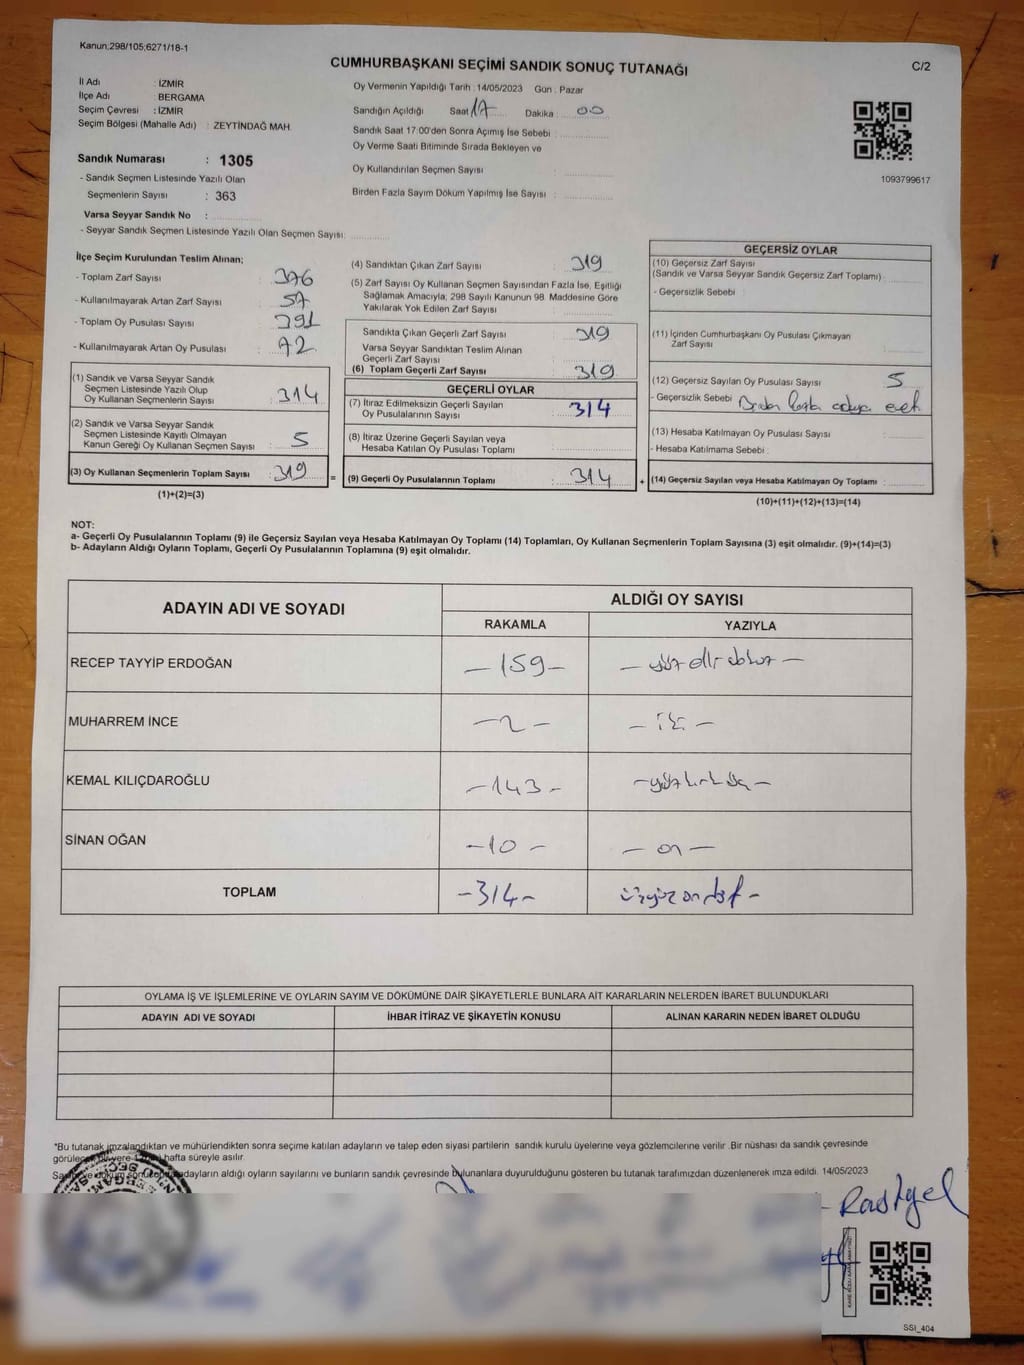 Kanun;298/105;6271/18-1
CUMHURBAŞKANI SEÇİMİ SANDIK SONUÇ TUTANAĞI
C/2
İl Adı : İZMİR
İlçe Adı BERGAMA
Seçim Çevresi : İZMİR
Seçim Bölgesi (Mahalle Adı) : ZEYTİNDAĞ MAH.
Sandık Numarası : 1305
- Sandık Seçmen Listesinde Yazılı Olan
Seçmenlerin Sayısı : 363
Varsa Seyyar Sandık No :
- Seyyar Sandık Seçmen Listesinde Yazılı Olan Seçmen Sayısı:
Oy Vermenin Yapıldığı Tarih : 14/05/2023 Gün : Pazar
Sandığın Açıldığı Saat 17 Dakika : 00
Sandık Saat 17:00'den Sonra Açımış İse Sebebi :
Oy Verme Saati Bitiminde Sırada Bekleyen ve
Oy Kullandırılan Seçmen Sayısı :
Birden Fazla Sayım Döküm Yapılmış İse Sayısı :
1093799617
İlçe Seçim Kurulundan Teslim Alınan;
- Toplam Zarf Sayısı : 376
- Kullanılmayarak Artan Zarf Sayısı : 57
- Toplam Oy Pusulası Sayısı : 391
- Kullanılmayarak Artan Oy Pusulası : 72
(1) Sandık ve Varsa Seyyar Sandık
Seçmen Listesinde Yazılı Olup
Oy Kullanan Seçmenlerin Sayısı : 314
(2) Sandık ve Varsa Seyyar Sandık
Seçmen Listesinde Kayıtlı Olmayan
Kanun Gereği Oy Kullanan Seçmen Sayısı : 5
(3) Oy Kullanan Seçmenlerin Toplam Sayısı : 319 =
(1)+(2)=(3)
(4) Sandıktan Çıkan Zarf Sayısı : 319
(5) Zarf Sayısı Oy Kullanan Seçmen Sayısından Fazla İse, Eşitliği
Sağlamak Amacıyla, 298 Sayılı Kanunun 98. Maddesine Göre
Yakılarak Yok Edilen Zarf Sayısı :
Sandıkta Çıkan Geçerli Zarf Sayısı : 319
Varsa Seyyar Sandıktan Teslim Alınan
Geçerli Zarf Sayısı :
(6) Toplam Geçerli Zarf Sayısı : 319
GEÇERLİ OYLAR
(7) İtiraz Edilmeksizin Geçerli Sayılan
Oy Pusulalarının Sayısı : 314
(8) İtiraz Üzerine Geçerli Sayılan veya
Hesaba Katılan Oy Pusulası Toplamı :
(9) Geçerli Oy Pusulalarının Toplamı : 314 +
GEÇERSİZ OYLAR
(10) Geçersiz Zarf Sayısı
(Sandık ve Varsa Seyyar Sandık Geçersiz Zarf Toplamı) :
- Geçersizlik Sebebi :
(11) İçinden Cumhurbaşkanı Oy Pusulası Çıkmayan
Zarf Sayısı :
(12) Geçersiz Sayılan Oy Pusulası Sayısı : 5
- Geçersizlik Sebebi : Birden fazla adaya evet
(13) Hesaba Katılmayan Oy Pusulası Sayısı :
- Hesaba Katılmama Sebebi :
(14) Geçersiz Sayılan veya Hesaba Katılmayan Oy Toplamı :
(10)+(11)+(12)+(13)=(14)
NOT:
a- Geçerli Oy Pusulalarının Toplamı (9) ile Geçersiz Sayılan veya Hesaba Katılmayan Oy Toplamı (14) Toplamları, Oy Kullanan Seçmenlerin Toplam Sayısına (3) eşit olmalıdır. (9)+(14)=(3)
b- Adayların Aldığı Oyların Toplamı, Geçerli Oy Pusulalarının Toplamına (9) eşit olmalıdır.
ADAYIN ADI VE SOYADI
ALDIĞI OY SAYISI
RAKAMLA YAZIYLA
RECEP TAYYİP ERDOĞAN -159- - yüz elli dokuz -
MUHARREM İNCE -2- - iki -
KEMAL KILIÇDAROĞLU -143- -yüzkırküç-
SİNAN OĞAN -10- - on -
TOPLAM -314- üçyüz ondört -
OYLAMA İŞ VE İŞLEMLERİNE VE OYLARIN SAYIM VE DÖKÜMÜNE DAİR ŞİKAYETLERLE BUNLARA AİT KARARLARIN NELERDEN İBARET BULUNDUKLARI
ADAYIN ADI VE SOYADI İHBAR İTİRAZ VE ŞİKAYETİN KONUSU ALINAN KARARIN NEDEN İBARET OLDUĞU
*Bu tutanak imzalandıktan ve mühürlendikten sonra seçime katılan adayların ve talep eden siyasi partilerin sandık kurulu üyelerine veya gözlemcilerine verilir .Bir nüshası da sandık çevresinde
hafta süreyle asılır.
adayların aldığı oyların sayılarını ve bunların sandık çevresinde bulunanlara duyurulduğunu gösteren bu tutanak tarafımızdan düzenlenerek imza edildi. 14/05/2023
SSİ_404